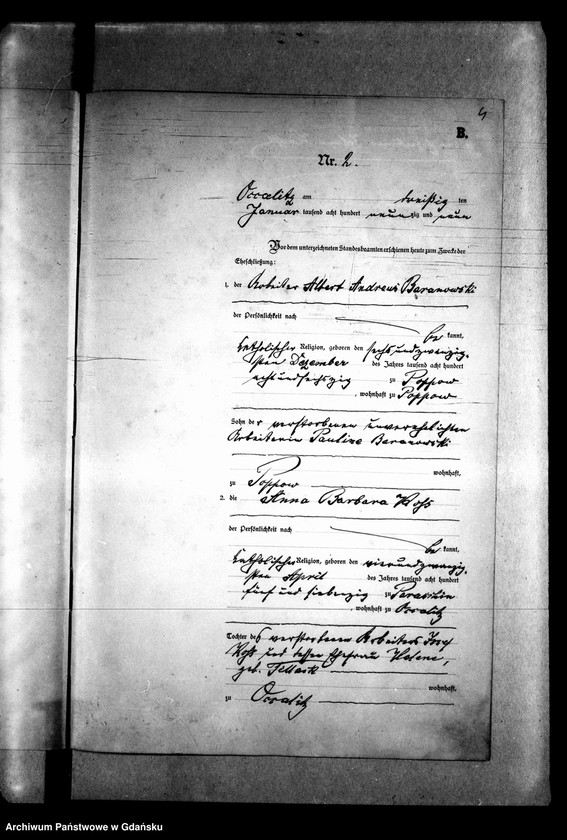 4
B.
Nr. 2.
Occalitz am dreißig ten
Januar tausend acht hundert neunzig und neun
Vor dem unterzeichneten Standesbeamten erschienen heute zum Zwecke der
Eheschließung:
1. der Arbeiter Albert Andreas Baranowski
der Persönlichkeit nach
be kannt,
katholischer Religion, geboren den sechsundzwanzig-
sten Dezember des Jahres tausend acht hundert
achtundsechszig zu Poppow
, wohnhaft zu Poppow
Sohn der verstorbenen unverehelichten
Arbeiterin Pauline Baranowski
wohnhaft
zu Poppow
2. die Anna Barbara Voss
der Persönlichkeit nach
be kannt,
katholischer Religion, geboren den vierundzwanzig-
sten April des Jahres tausend acht hundert
fünf und siebenzig zu
, wohnhaft zu Occalitz
Tochter des verstorbenen Arbeiters Josef
und dessen Ehefrau Helene,
geb.
wohnhaft
zu Occalitz
Archiwum Państwowe w Gdańsku